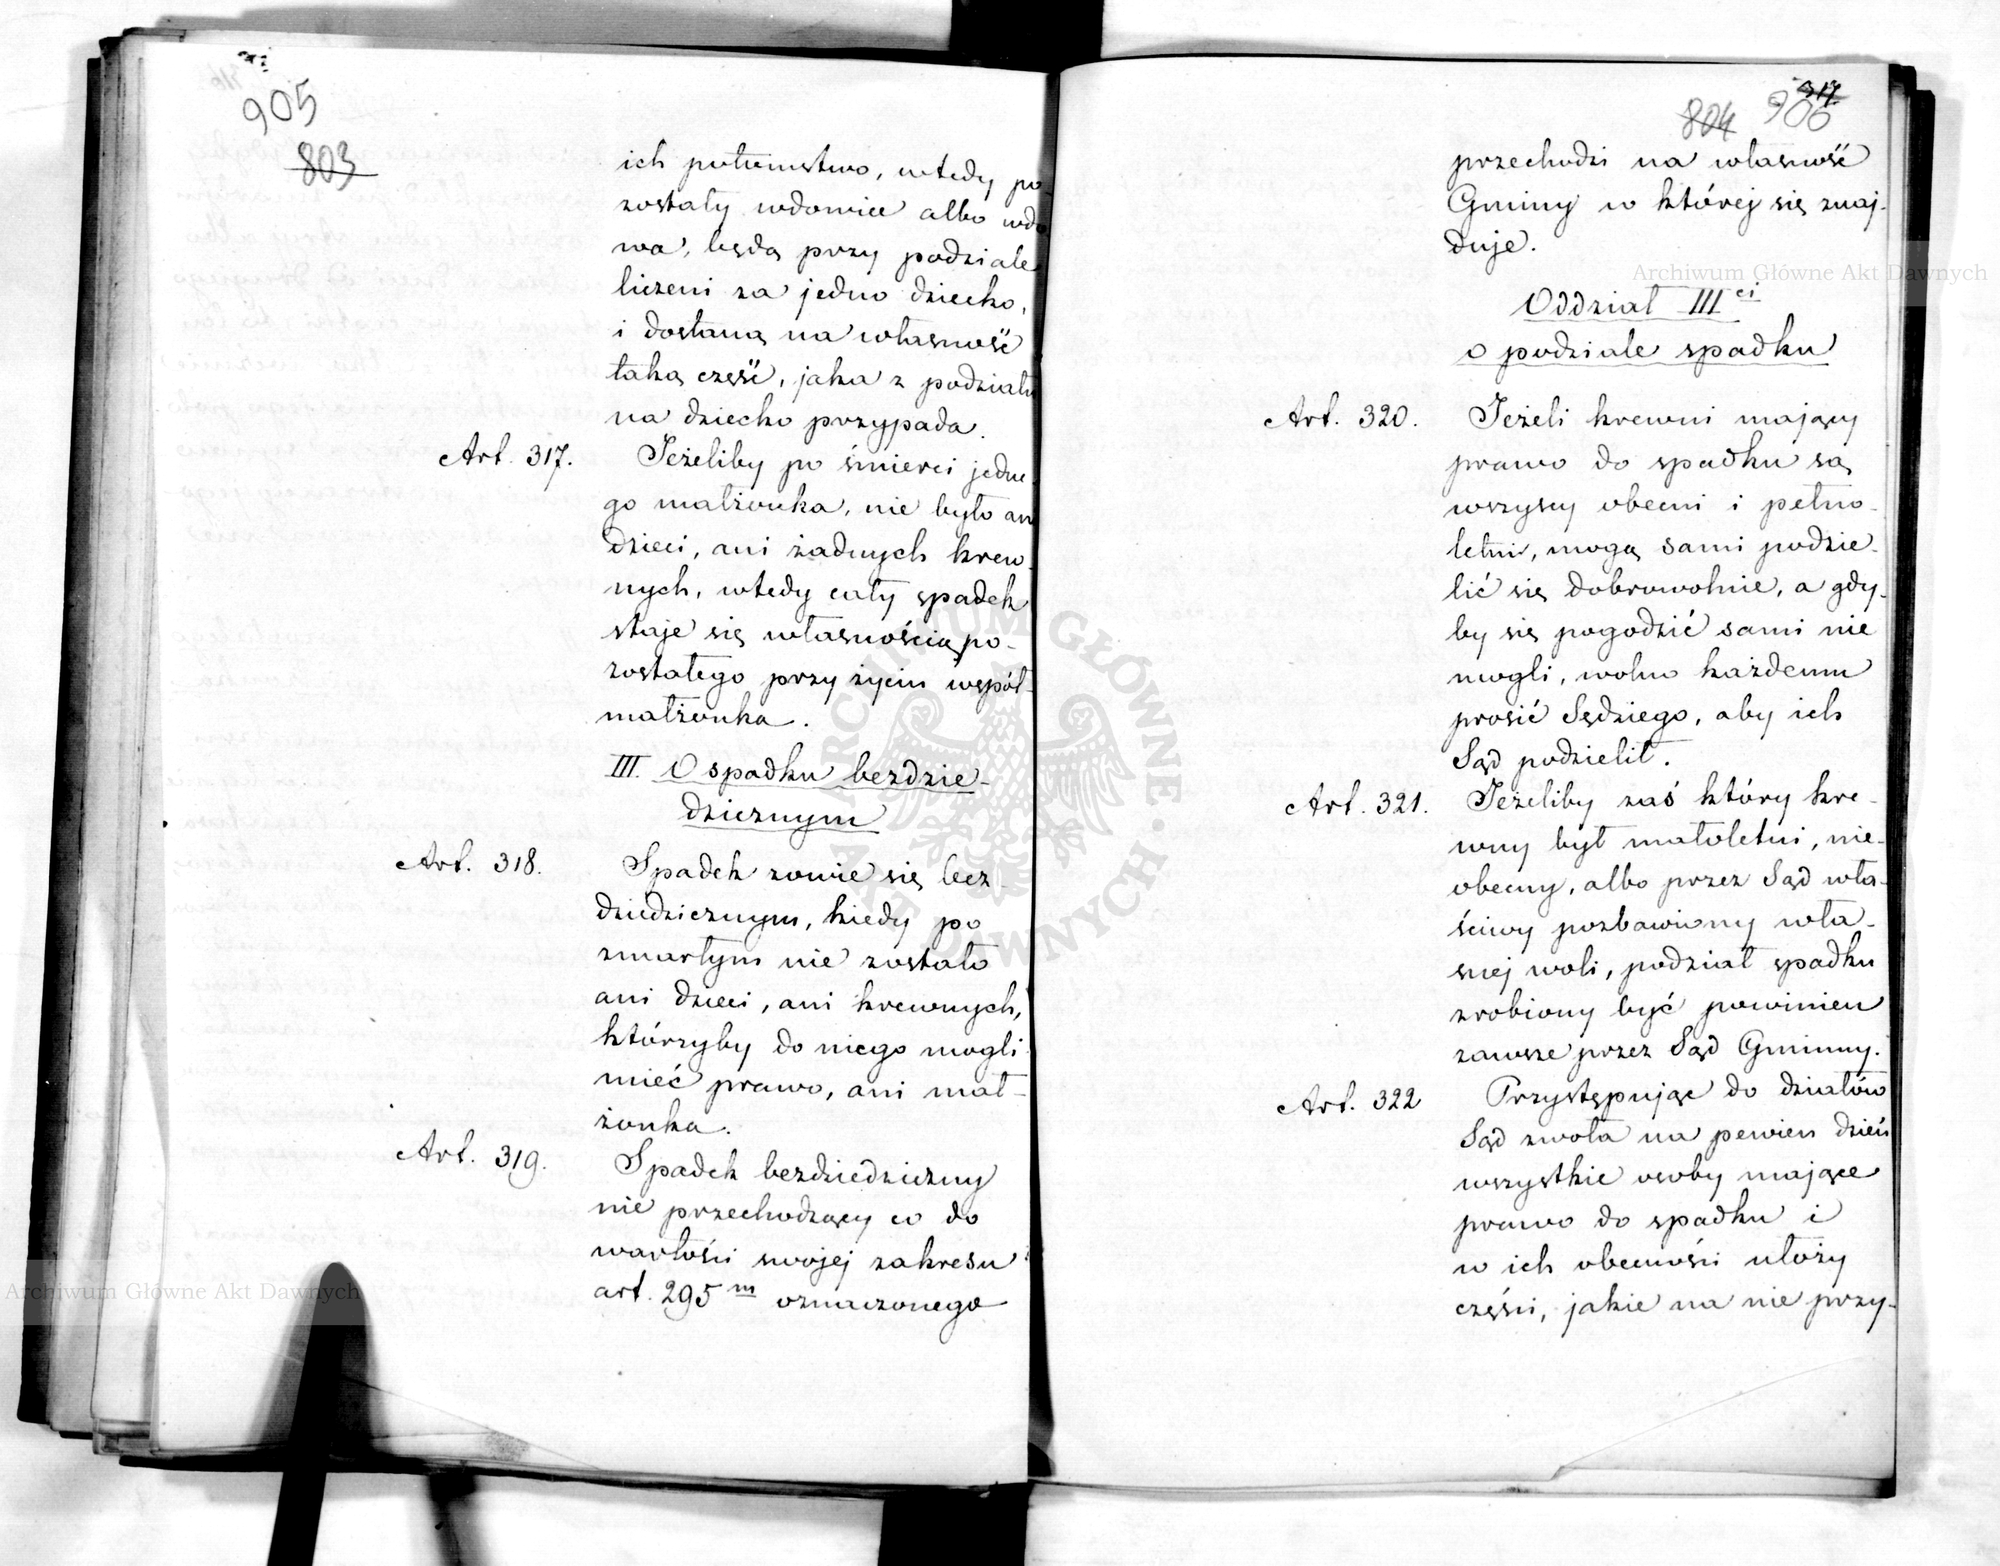 905
803
ich potomstwo, wtedy po-
zostały wdowiec albo wdo
wa, będą przy podziale
liczeni za jedno dziecko,
i dostaną na własność
taką część, jaka z podziału
na dziecko przypada.
Art. 317. Jeżeliby po śmierci jedne
go małżonka, nie było an
dzieci, ani żadnych krew
nych, wtedy cały spadek
staje się własnością po-
zostałego przy życiu współ-
małżonka.
III. O spadku bezdzie-
dzicznym
Art. 318. Spadek zowie się bez
dziedzicznym, kiedy po
zmarłym nie zostało
ani dzieci, ani krewnych,
którzyby do niego mogli
mieć prawo, ani mał-
żonka.
Art. 319. Spadek bezdziedziczny
nie przechodzący co do
wartości swojej zakresu
art. 295m oznaczonego
317
804 906
przechodzi na własność
Gminy w której się znaj-
duje.
Oddział IIIci
o podziale spadku
Art. 320. Jeżeli krewni mający
prawo do spadku są
wszyscy obecni i pełno-
letni, mogą sami podzie-
lić się dobrowolnie, a gdy-
by się pogodzić sami nie
mogli, wolno każdemu
prosić Sędziego, aby ich
Sąd podzielił.
Art. 321. Jeżeliby zaś który kre-
wny był małoletni, nie-
obecny, albo przez Sąd wła-
ściwy pozbawiony wła-
snej woli, podział spadku
zrobiony być powinien
zawsze przez Sąd Gminny.
Art. 322 Przystępując do działów
Sąd zwoła na pewien dzień
wszystkie osoby mające
prawo do spadku i
w ich obecności ułoży
części, jakie na nie przy-
Archiwum Główne Akt Dawnych
Archiwum Główne Akt Dawnych
ARCHIWUM GŁÓWNE AKT DAWNYCH